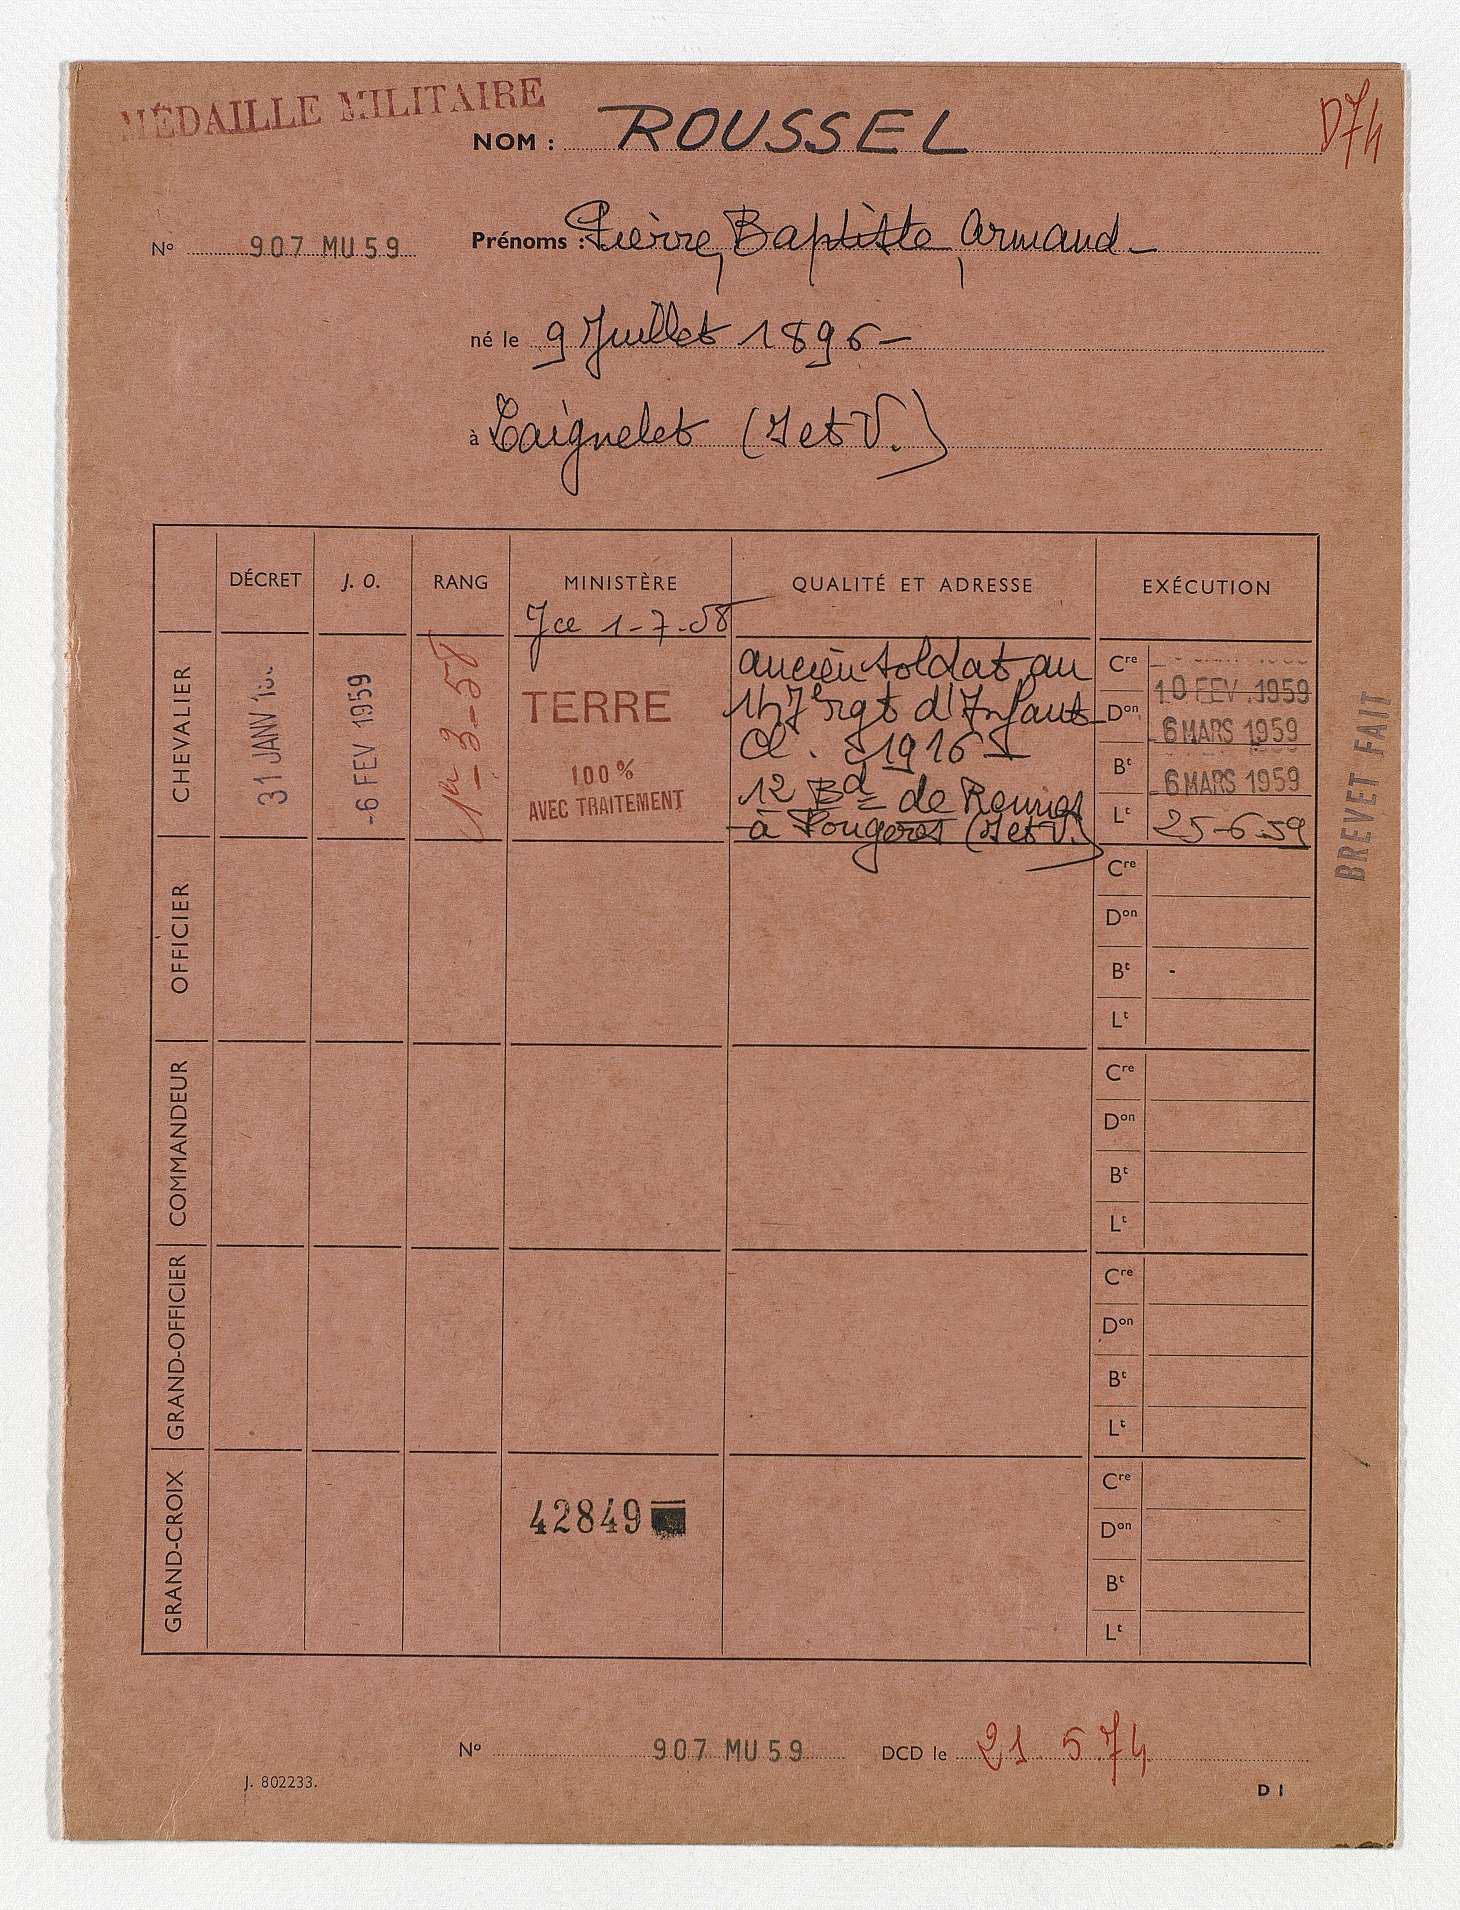 MÉDAILLE MILITAIRE
NOM : ROUSSEL
D74
N° 907 MU 59
Prénoms : Pierre, Baptiste, Armand -
né le 9 Juillet 1896 -
à Laignelet (I et V.)
DÉCRET J. O. RANG MINISTÈRE QUALITÉ ET ADRESSE EXÉCUTION
Jce 1-7-58
CHEVALIER
31 JANV
-6 FEV 1959
1er-3-58
TERRE
100 %
AVEC TRAITEMENT
ancien soldat au
147e rgt d'Infant
Cl. 1916 -
12 Bd de Rennes
- à Fougeres (I et V.)
Cre 10 FEV. 1959
Don 6 MARS 1959
Bt 6 MARS 1959
Lt 25-6-59
BREVET FAIT
OFFICIER
Cre
Don
Bt -
Lt
COMMANDEUR
Cre
Don
Bt
Lt
GRAND-OFFICIER
Cre
Don
Bt
Lt
GRAND-CROIX
42849
Cre
Don
Bt
Lt
N° 907 MU 59
DCD le 21.5.74
J. 802233.
D I